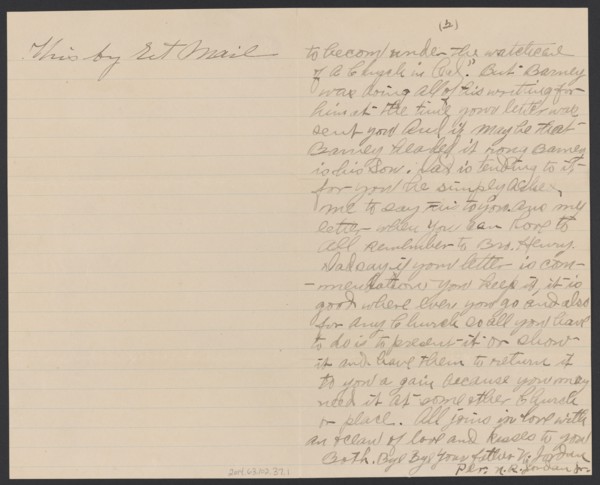 This by Ret Mail
(2)
to become under the watchcare
of a Church in Cal." But Barney
was doing all of his writing for
him at the time your letter was
sent you and it may be that
Barney headed it rong Barney
is his Son. Dad is tending to it
for you he simply asked
me to say this to you. Ans my
letter when you can love to
all, remember to Bro. Henry.
Dad say if your letter is com-
-mendation you keep it, it is
good where ever you go and also
for any Church so all you have
to do is to present it or show
it and have them to return it
to you a gain because you may
need it at some other Church
or place. All joins in love with
an ocean of love and kisses to you
Both. Bye Bye your father N. Jordan
Per. N. R. Jordan Jr.
2014.63.102.37.1